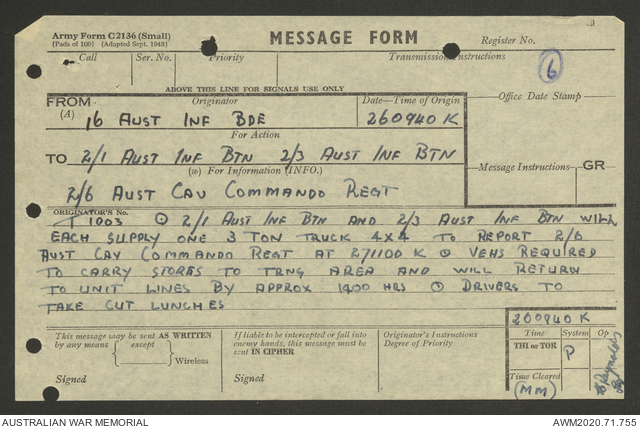 Army Form C2136 (Small)
(Pads of 100) (Adapted Sept. 1943)
MESSAGE FORM
Register No.
Call
Ser. No.
Priority
Transmission Instructions
6
ABOVE THIS LINE FOR SIGNALS USE ONLY
FROM
(A)
Originator
Date—Time of Origin
Office Date Stamp
16 AUST INF BDE
260940 K
For Action
TO 2/1 AUST INF BTN 2/3 AUST INF BTN
(w) For Information (INFO.)
Message Instructions
GR
2/6 AUST CAV COMMANDO REGT
ORIGINATOR'S No.
T 1003 ⊙ 2/1 AUST INF BTN AND 2/3 AUST INF BTN WILL
EACH SUPPLY ONE 3 TON TRUCK 4X4 TO REPORT 2/6
AUST CAV COMMANDO REGT AT 271100 K ⊙ VEHS REQUIRED
TO CARRY STORES TO TRNG AREA AND WILL RETURN
TO UNIT LINES BY APPROX 1400 HRS ⊙ DRIVERS TO
TAKE CUT LUNCHES
200940 K
This message may be sent AS WRITTEN
by any means except
Wireless
Signed
If liable to be intercepted or fall into
enemy hands, this message must be
sent IN CIPHER
Signed
Originator's Instructions
Degree of Priority
Time System Op
THI or TOR P
Time Cleared
(MM)
AUSTRALIAN WAR MEMORIAL
AWM2020.71.755